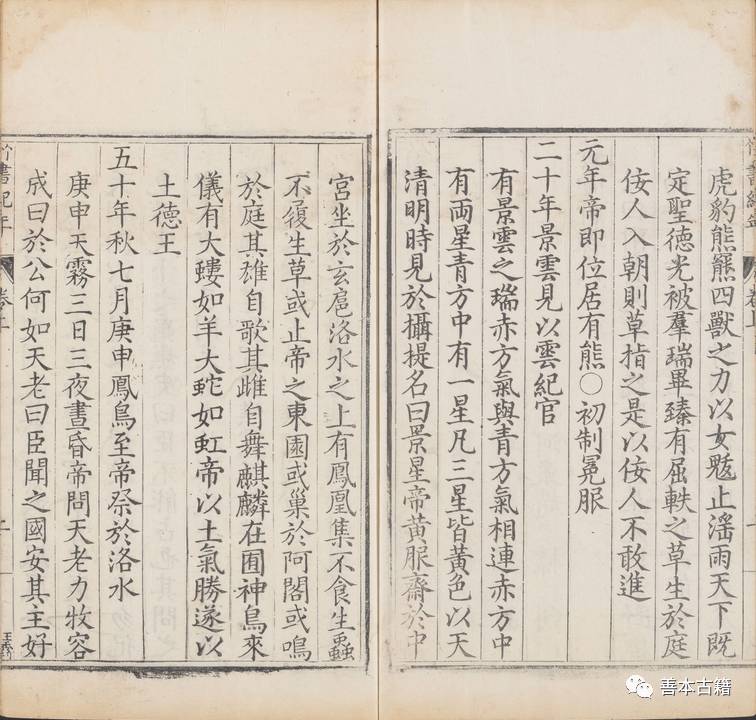 竹書紀年
虎豹熊羆四獸之力以女魃止滛雨天下既
定聖德光被羣瑞畢臻有屈軼之草生於庭
佞人入朝則草指之是以佞人不敢進
元年帝即位居有熊○初制冕服
二十年景雲見以雲紀官
有景雲之瑞赤方氣與青方氣相連赤方中
有兩星青方中有一星凡三星皆黃色以天
清明時見於攝提名曰景星帝黃服齋於中
宮坐於玄扈洛水之上有鳳凰集不食生蟲
不履生草或止帝之東園或巢於阿閣或鳴
於庭其雄自歌其雌自舞麒麟在囿神鳥來
儀有大螻如羊大螾如虹帝以土氣勝遂以
土德王
五十年秋七月庚申鳳鳥至帝祭於洛水
庚申天霧三日三夜晝昏帝問天老力牧容
成曰於公何如天老曰臣聞之國安其主好
竹書紀年 卷上 二
善本古籍